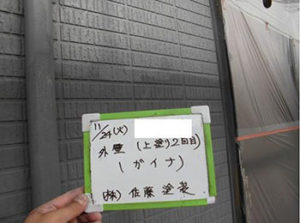 11/24(火)
外壁(上塗り2回目)
(ガイナ)
(株)佐藤塗装